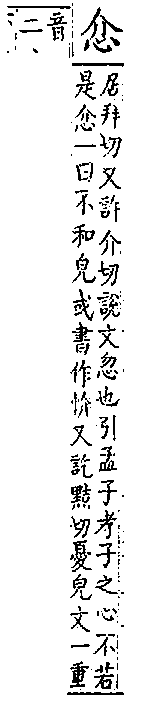 忿
居拜切又許介切說文忽也引孟子孝子之心不若
是忿一曰不和皃或書作忦又訖黠切憂皃文一重
音二